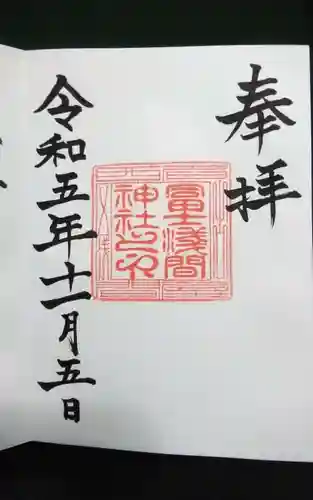 奉拝
冨士浅間
神社之印
令和五年十一月五日